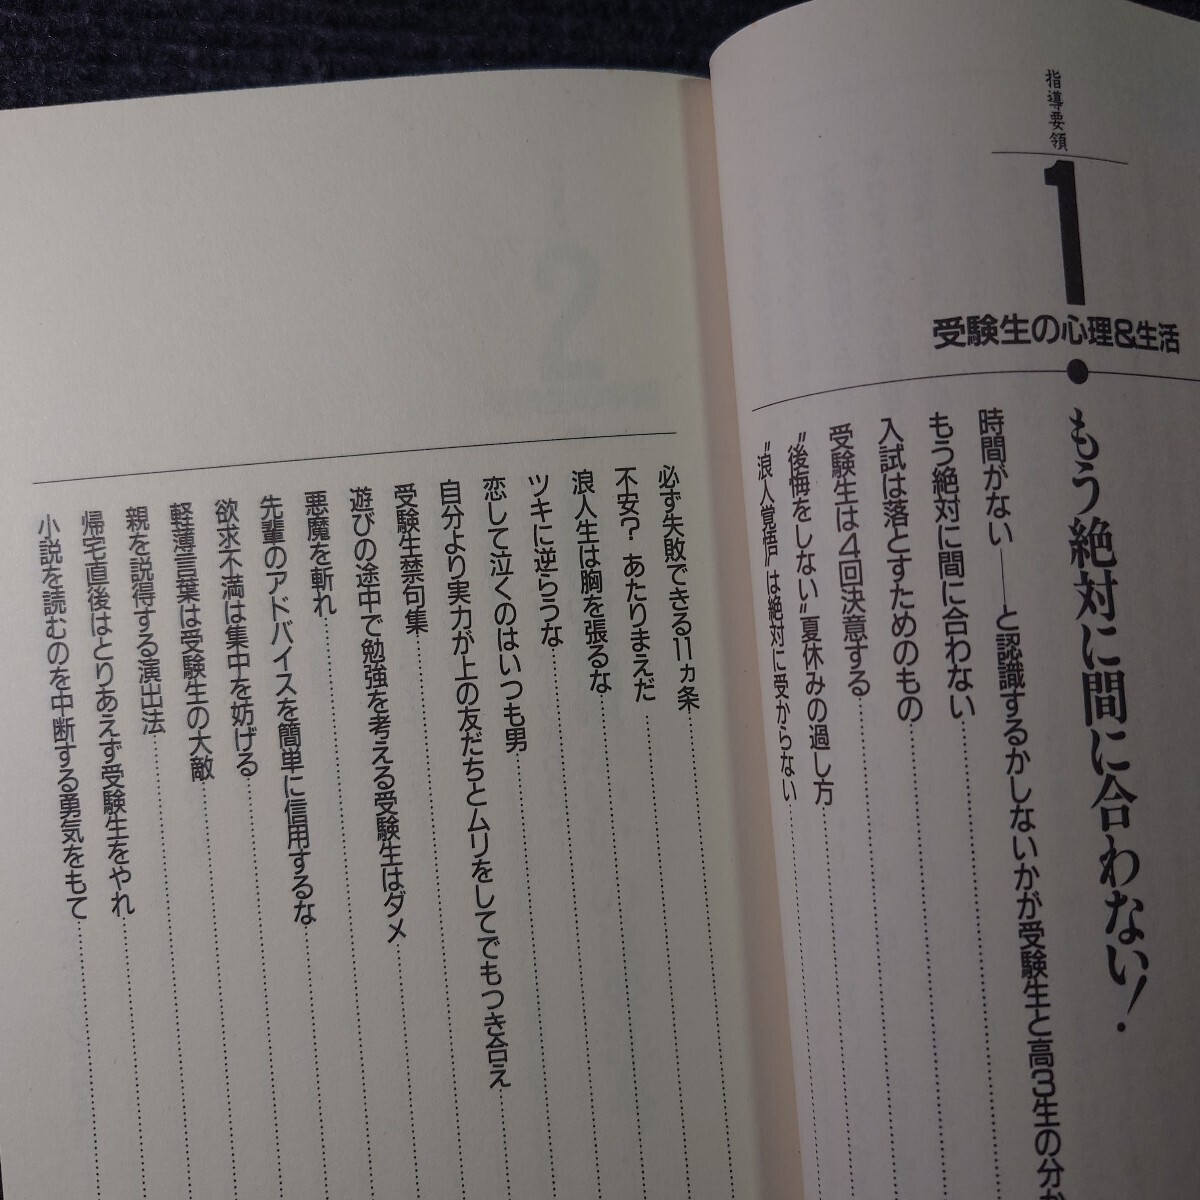 指導要領
1
受験生の心理&生活
もう絶対に間に合わない!
時間がない――と認識するかしないかが受験生と高3生の分か
もう絶対に間に合わない
入試は落とすためのもの
受験生は4回決意する
“後悔をしない”夏休みの過し方
“浪人覚悟”は絶対に受からない
必ず失敗できる11ヵ条
不安?あたりまえだ
浪人生は胸を張るな
ツキに逆らうな
恋して泣くのはいつも男
自分より実力が上の友だちとムリをしてでもつき合え
受験生禁句集
遊びの途中で勉強を考える受験生はダメ
悪魔を斬れ
先輩のアドバイスを簡単に信用するな
欲求不満は集中を妨げる
軽薄言葉は受験生の大敵
親を説得する演出法
帰宅直後はとりあえず受験生をやれ
小説を読むのを中断する勇気をもて
2